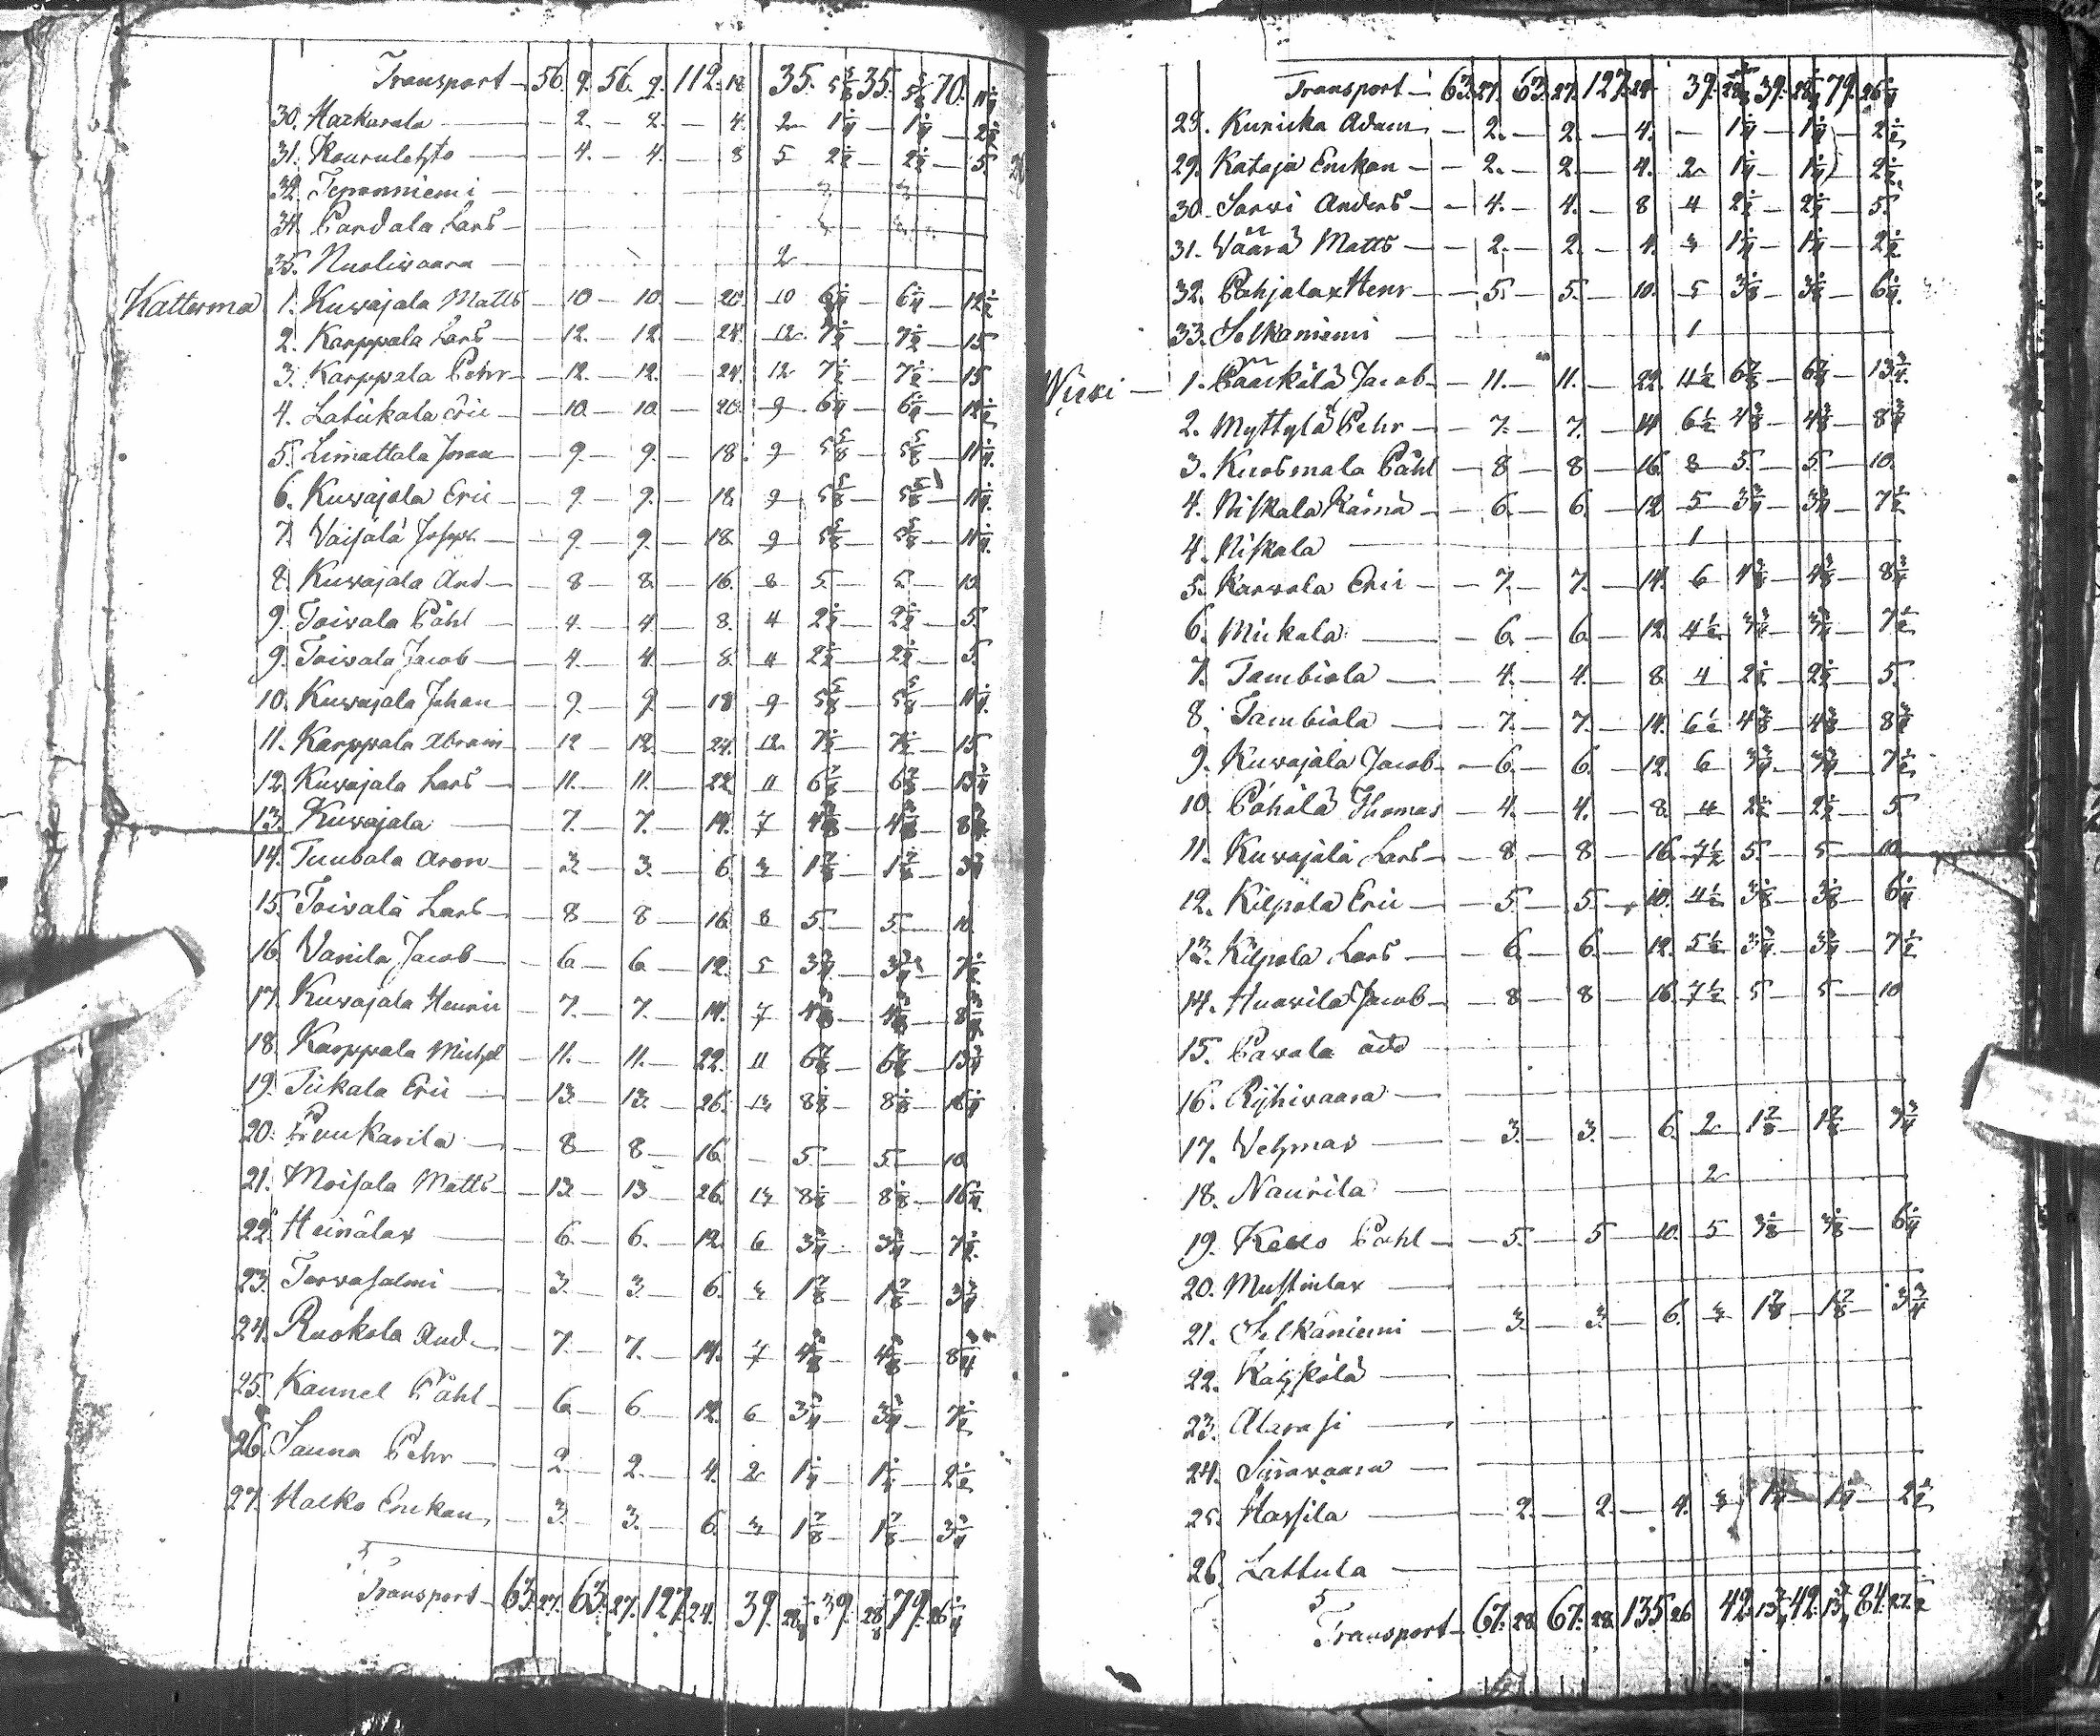 Transport – 56. 9. 56. 9. 112. 18 35. 5 5/8 35. 5 5/8 70. 11 1/4
30. Harkurala – 2. – 2. – 4. 2 1 1/4 – 1 1/4 – 2 1/2
31. Kourulehto – 4. – 4. – 8 5 2 1/2 – 2 1/2 – 5.
32. Teponniemi –
34. Pardala Lars –
35. Nuoliwaara – 2
Katterma 1. Kuwajala Matts – 10 – 10. – 20. 10 6 1/4 – 6 1/4 – 12 1/2
2. Karppala Lars – 12. – 12. – 24. 12 7 1/2 – 7 1/2 – 15
3. Karppala Pehr – 12. – 12. – 24. 12 7 1/2 – 7 1/2 – 15
4. Latukala Eric – 10. – 10. – 20. 9 6 1/4 – 6 1/4 – 12 1/2
5. Limattala Joran – 9. – 9. – 18. 9 5 5/8 – 5 5/8 – 11 1/4
6. Kuwajala Eric – 9. – 9. – 18. 9 5 5/8 – 5 5/8 – 11 1/4
7. Väisälä – 9. – 9. – 18. 9 5 5/8 – 5 5/8 – 11 1/4
8. Kuwajala And – 8 – 8. – 16. 8 5. – 5. – 10
9. Toiwala Påhl – 4. – 4. – 8. 4 2 1/2 – 2 1/2 – 5.
9. Toiwala Jacob – 4. – 4. – 8. 4 2 1/2 – 2 1/2 – 5.
10. Kuwajala Johan – 9. – 9. – 18. 9 5 5/8 – 5 5/8 – 11 1/4
11. Karppala Abram – 12 – 12. – 24. 12 7 1/2 – 7 1/2 – 15
12. Kuwajala Lars – 11. – 11. – 22 11 6 7/8 – 6 7/8 – 13 3/4
13. Kuwajala – 7. – 7. – 14. 7 4 3/8 – 4 3/8 – 8 3/4
14. Tuubala Aron – 3 – 3. – 6. 3 1 7/8 – 1 7/8 – 3 3/4
15. Toivala Lars – 8 – 8 – 16. 8 5. – 5. – 10.
16. Vanila Jacob – 6 – 6 – 12. 5 3 3/4 – 3 3/4 – 7 1/2
17. Kuwajala Henric – 7. – 7. – 14. 7 4 3/8 – 4 3/8 – 8 3/4
18. Karppala Michel – 11. – 11. – 22. 11 6 7/8 – 6 7/8 – 13 3/4
19. Tiikala Eric – 13. – 13. – 26. 13 8 1/8 – 8 1/8 – 16 1/4
20. Puukarila – 8 – 8 – 16. – 5. – 5. – 10
21. Moisala Matts – 13 – 13 – 26. 13 8 1/8 – 8 1/8 – 16 1/4
22. Heinälax – 6. – 6. – 12. 6 3 3/4 – 3 3/4 – 7 1/2
23. Terwasalmi – 3. – 3. – 6. 3 1 7/8 – 1 7/8 – 3 3/4
24. Ruokola And – 7. – 7. – 14. 7 4 3/8 – 4 3/8 – 8 3/4
25. Kannel Påhl – 6. – 6 – 12. 6 3 3/4 – 3 3/4 – 7 1/2
26. Sauna Pehr – 2. – 2. – 4. 2 1 1/4 – 1 1/4 – 2 1/2
27. Halko Enckan – 3. – 3. – 6. 3 1 7/8 – 1 7/8 – 3 3/4
Transport – 63. 27. 63. 27. 127. 24. 39. 28 1/8 39. 28 1/8 79. 26 1/4
Transport – 63. 27. 63. 27. 127. 24. 39. 28 1/8 39. 28 1/8 79. 26 1/4
28. Kuricka Adam – 2. – 2. – 4. – 1 1/4 – 1 1/4 – 2 1/2
29. Kataja Enckan – 2. – 2. – 4. 2 1 1/4 – 1 1/4 – 2 1/2
30. Sarwi Anders – 4. – 4. – 8 4 2 1/2 – 2 1/2 – 5.
31. Väärä Matts – 2. – 2. – 4. 3 1 1/4 – 1 1/4 – 2 1/2
32. Pohjalax Henr – 5. – 5. – 10. 5 3 1/8 – 3 1/8 – 6 1/4
33. Selkäniemi – 1
Wiexi – 1. Pääskölä Jacob – 11. – 11. – 22. 11 1/2 6 7/8 – 6 7/8 – 13 3/4
2. Myttylä Pehr – 7. – 7. – 14 6 1/2 4 3/8 – 4 3/8 – 8 3/4
3. Kuosmala Påhl – 8 – 8 – 16. 8 5. – 5. – 10.
4. Niskala – 6. – 6. – 12 5 3 3/4 – 3 3/4 – 7 1/2
4. Niskala – 1
5. Karwala Eric – 7. – 7. – 14. 6 4 3/8 – 4 3/8 – 8 3/4
6. Mickala – 6. – 6. – 12 4 1/2 3 3/4 – 3 3/4 – 7 1/2
7. Tambiola – 4. – 4. – 8 4 2 1/2 – 2 1/2 – 5.
8. Tambiola – 7. – 7. – 14. 6 1/2 4 3/8 – 4 3/8 – 8 3/4
9. Kuwajala Jacob – 6. – 6. – 12. 6 3 3/4 – 3 3/4 – 7 1/2
10. Påhölä Thomas – 4. – 4. – 8. 4 2 1/2 – 2 1/2 – 5
11. Kuwajala Lars – 8 – 8 – 16. 7 1/2 5. – 5 – 10
12. Kilpola Eric – 5. – 5. – 10. 4 1/2 3 1/8 – 3 1/8 – 6 1/4
13. Kilpola Lars – 6. – 6. – 12. 5 1/2 3 3/4 – 3 3/4 – 7 1/2
14. Huowila Jacob – 8 – 8 – 16. 7 1/2 5 – 5 – 10
15. Pawala öde –
16. Ryhiwaara –
17. Vehmas – 3. – 3. – 6. 2 1 7/8 – 1 7/8 – 3 3/4
18. Naurila – 2
19. Kello Påhl – 5. – 5 – 10. 5 3 1/8 – 3 1/8 – 6 1/4
20. Mustinlax –
21. Selkäniemi – 3. – 3. – 6. 3 1 7/8 – 1 7/8 – 3 3/4
22. Käypölä –
23. Alavasi –
24. Sinavaara –
25. Hassila – 2. – 2. – 4. 3 1 1/4 – 1 1/4 – 2 1/2
26. Lattula –
Transport – 67. 28. 67. 28. 135. 26 42. 13 3/4 42. 13 3/4 84. 27 1/2